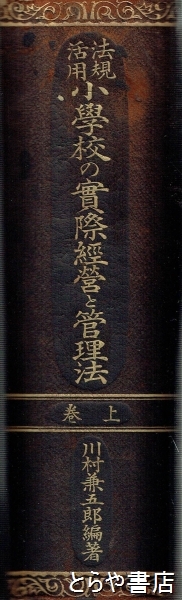 法規
活用
小學校の實際經營と管理法
上巻
川村兼五郎編著
とらや書店